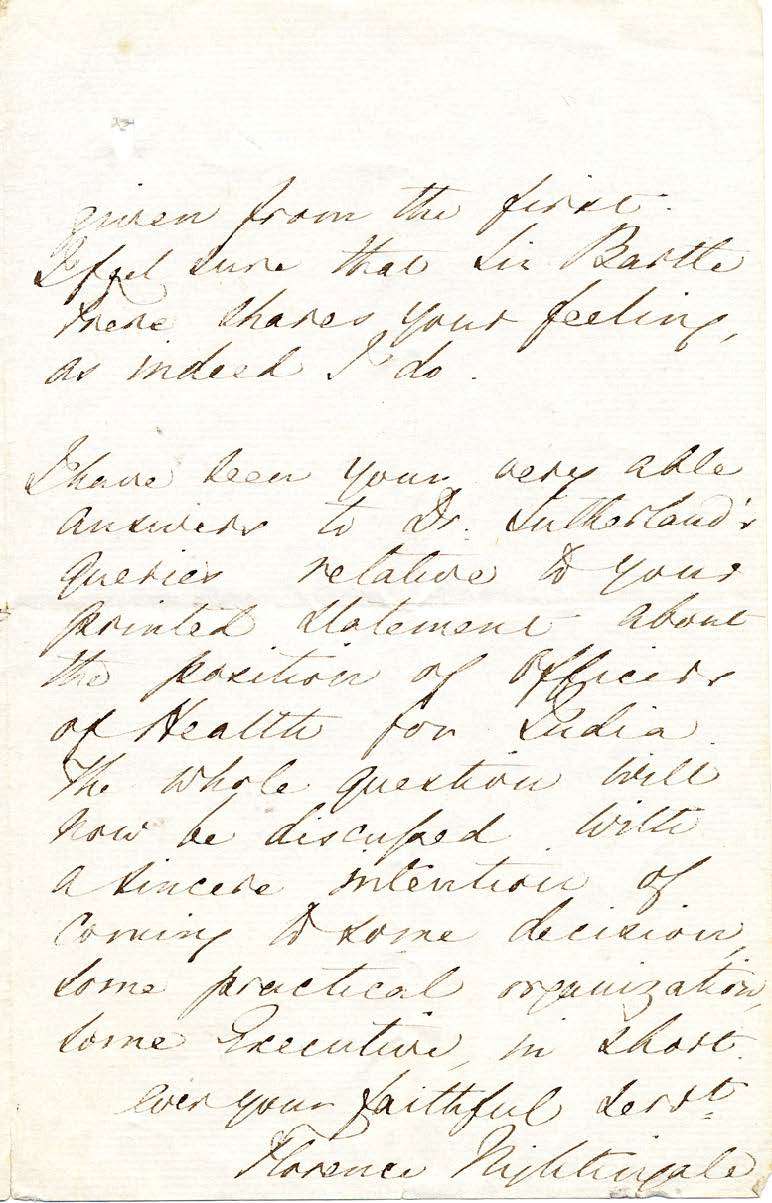 given from the first.
I feel sure that Sir Bartle
Frere shares your feeling,
as indeed I do.
I have seen your very able
answers to Dr. Sutherland's
queries relative to your
printed statement about
the position of Officers
of Health for India.
The whole question will
now be discussed with
a sincere intention of
coming to some decision,
some practical organization,
some Executive, in short.
ever your faithful servt.
Florence Nightingale